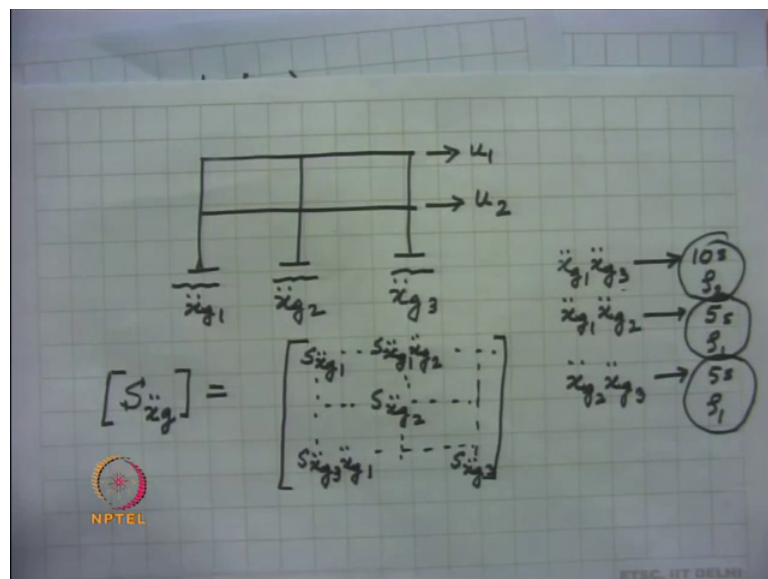 → u₁
→ u₂
ẍg₁ ẍg₂ ẍg₃
ẍg₁ẍg₃ → 10s
ρ₂
ẍg₁ẍg₂ → 5s
ρ₁
ẍg₂ẍg₃ → 5s
ρ₁
[Sẍg] = [ Sẍg₁ --- Sẍg₁ẍg₂ --- ]
--- Sẍg₂ ---
Sẍg₃ẍg₁ --- Sẍg₃
NPTEL
ETSC, IIT DELHI